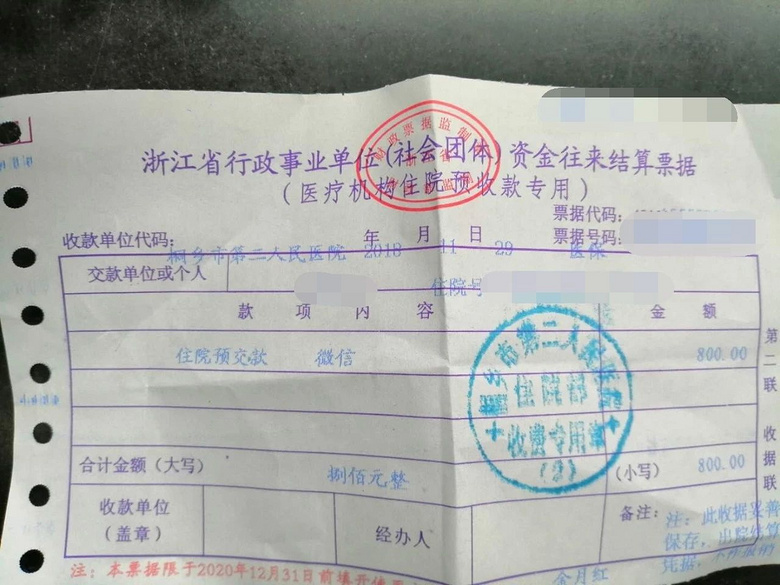 浙江省行政事业单位(社会团体)资金往来结算票据
财政票据监制
(医疗机构住院预收款专用)
票据代码:
收款单位代码: 年 月 日 票据号码:
桐乡市第二人民医院 2018 11 29 医保
交款单位或个人 住院号
款 项 内 容 金 额
住院预交款 微信 800.00
乡市第二人民医院
住院部
收费专用章
(2)
合计金额(大写) 捌佰元整 (小写) 800.00
收款单位
(盖章)
经办人
备注: 注: 此收据妥善
保存, 出院结算
凭据,
金月红
注: 本票据限于2020年12月31日前填开使用
第二联 收据联